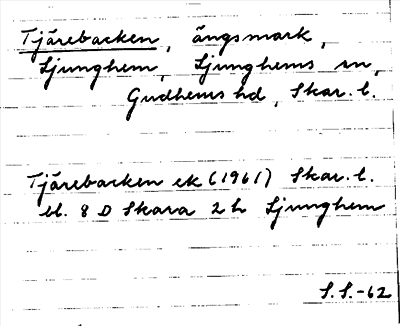 Tjärebacken, ängsmark,
Ljunghem, Ljunghems sn,
Gudhems hd, Skar. l.
Tjärebacken ek (1961) Skar. l.
bl. 8 D Skara 2h Ljunghem
S.S.-62